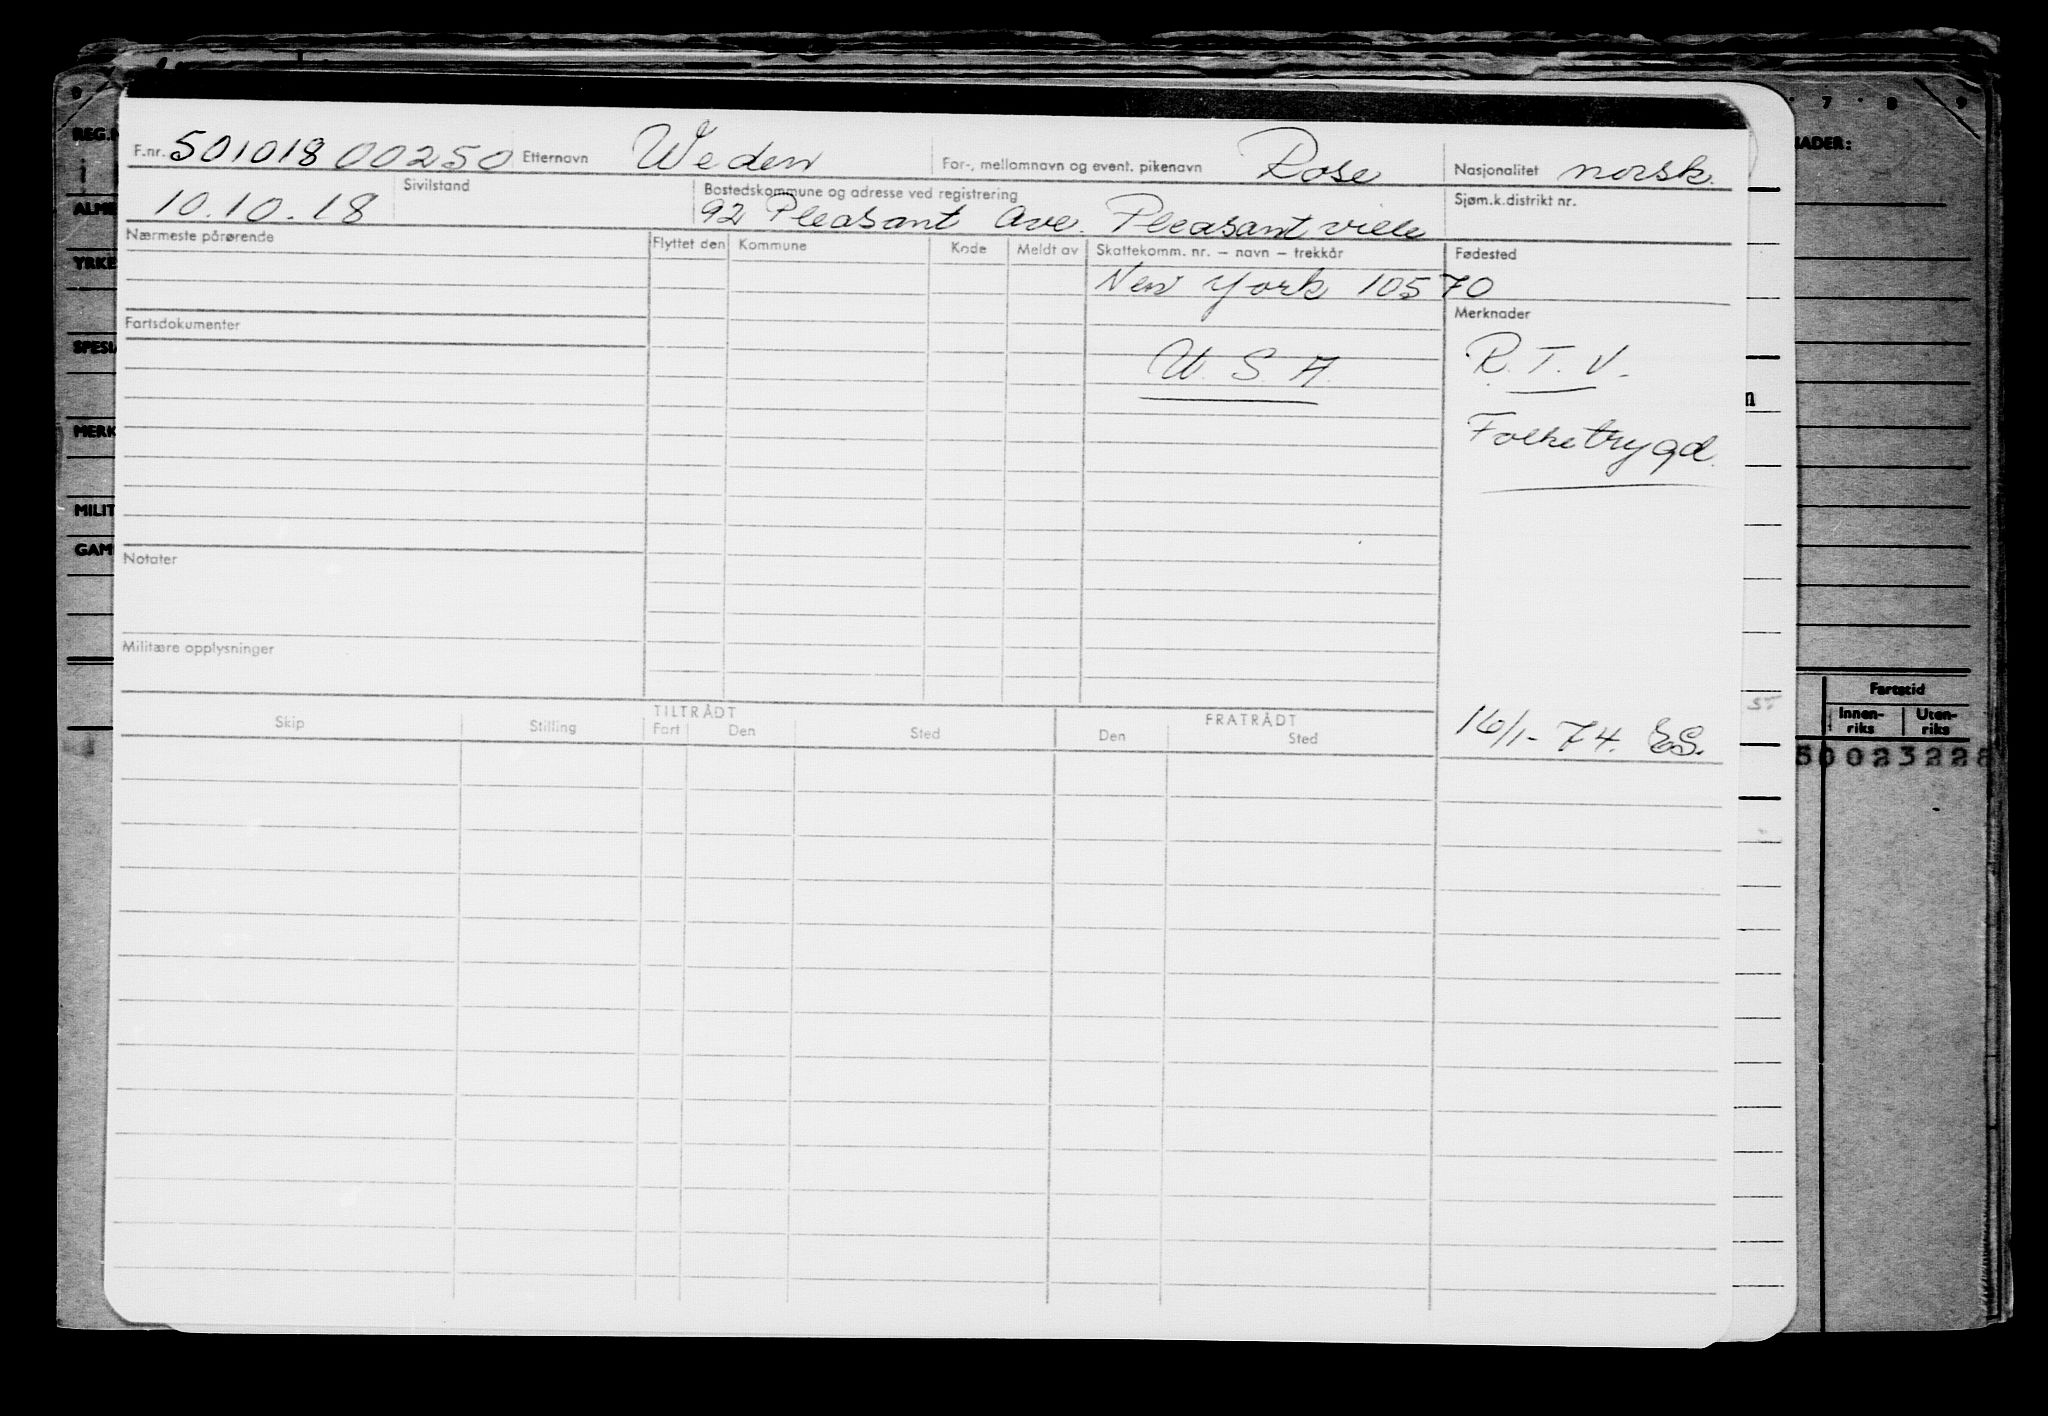 F.nr. 501018 00250 Etternavn Weden For-, mellomnavn og event. pikenavn Rose Nasjonalitet norsk.
10.10.18 Sivilstand Bostedskommune og adresse ved registrering 92 Pleasant Ave. Pleasantville Sjøm.k.distrikt nr.
Nærmeste pårørende Flyttet den Kommune Kode Meldt av Skattekomm. nr. – navn – trekkår Fødested
New York 10570
Fartsdokumenter Merknader
U.S.A. R.T.V.
Folketrygd.
Notater
Militære opplysninger
TILTRÅDT FRATRÅDT
Skip Stilling Fart Den Sted Den Sted
16/1-74. ES.
7 8 9
REG.N
ALME
YRKE
SPESI
MERK
MILIT
GAM
NADER:
Fartstid
Innen-riks Uten-riks
50023228